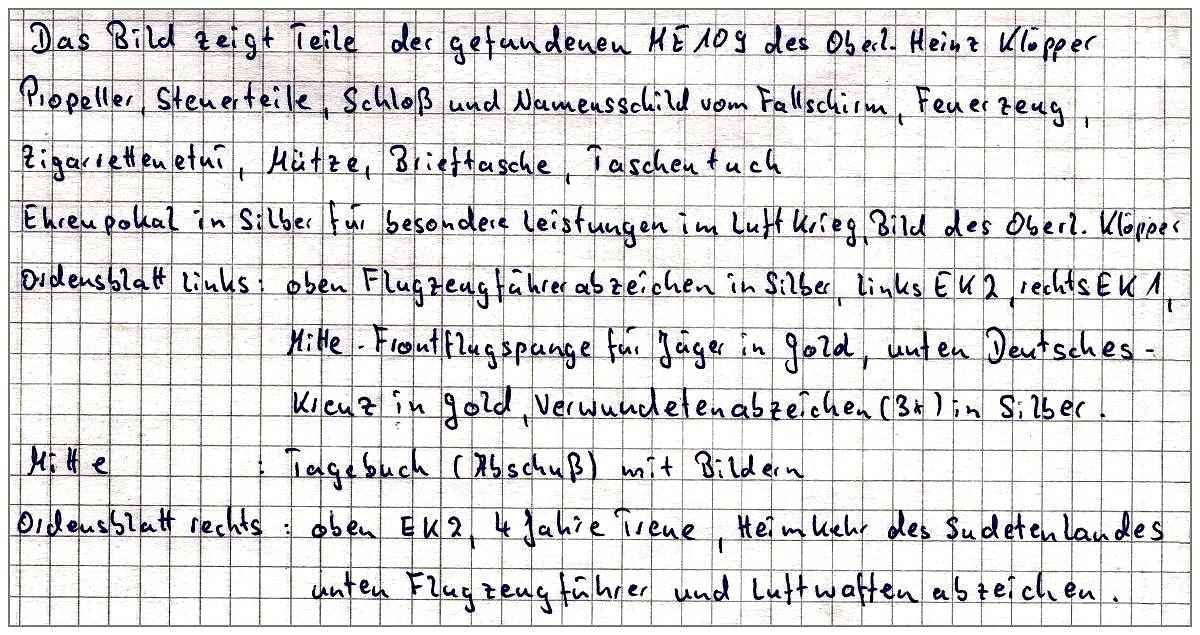 Das Bild zeigt Teile der gefundenen ME 109 des Oberl. Heinz Klöpper
Propeller, Steuerteile, Schloß und Namensschild vom Fallschirm, Feuerzeug,
Zigarrettenetui, Mütze, Brieftasche, Taschentuch
Ehrenpokal in Silber für besondere Leistungen im Luftkrieg, Bild des Oberl. Klöpper
Ordensblatt links: oben Flugzeugführerabzeichen in Silber, links EK2, rechts EK1,
Mitte - Frontflugspange für Jäger in gold, unten Deutsches-
Kreuz in gold, Verwundetenabzeichen (3x) in Silber.
Mitte : Tagebuch (Abschuß) mit Bildern
Ordensblatt rechts: oben EK2, 4 Jahre Treue, Heimkehr des Sudetenlandes
unten Flugzeugführer und Luftwaffenabzeichen.